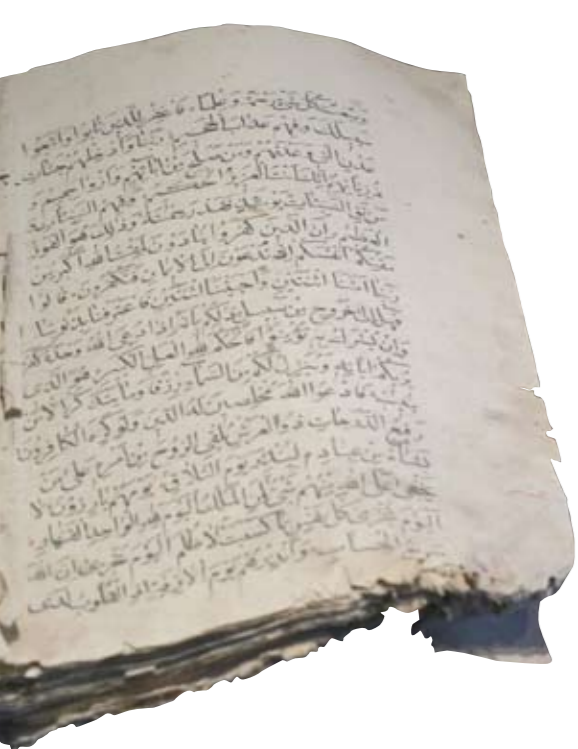 وسعت كل شيء رحمة وعلما فاغفر للذين تابوا واتبعوا
سبيلك وقهم عذاب الجحيم ربنا وأدخلهم جنات
عدن التي وعدتهم ومن صلح من آبائهم وأزواجهم و
ذرياتهم إنك أنت العزيز الحكيم وقهم السيئات ومن
تق السيئات يومئذ فقد رحمته وذلك هو الفوز
العظيم إن الذين كفروا ينادون لمقت الله أكبر من
مقتكم أنفسكم إذ تدعون إلى الإيمان فتكفرون قالوا
ربنا أمتنا اثنتين وأحييتنا اثنتين فاعترفنا بذنوبنا
فهل إلى خروج من سبيل ذلكم بأنه إذا دعي الله وحده كفرتم
وإن يشرك به تؤمنوا فالحكم لله العلي الكبير هو الذي
يريكم آياته وينزل لكم من السماء رزقا وما يتذكر إلا من
ينيب فادعوا الله مخلصين له الدين ولو كره الكافرون
رفيع الدرجات ذو العرش يلقي الروح من أمره على من
يشاء من عباده لينذر يوم التلاق يوم هم بارزون لا
يخفى على الله منهم شيء لمن الملك اليوم لله الواحد القهار
اليوم تجزى كل نفس بما كسبت لا ظلم اليوم إن الله
سريع الحساب وأنذرهم يوم الآزفة إذ القلوب لدى